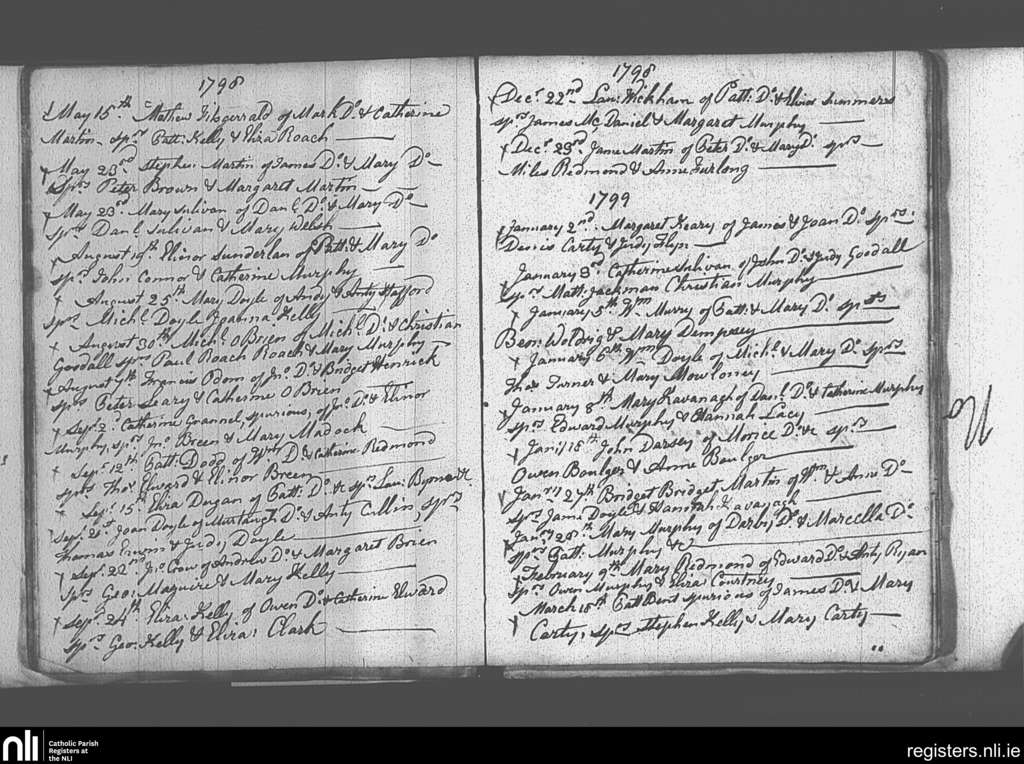 1798
May 15th Mathew Fitsgerrald of Mark Do & Catherine
Martin - sprs Patt: Kelly & Eliza Roach
May 23rd Stephen Martin of James Do & Mary Do
Sprs Peter Brown & Margaret Martin
May 23rd Mary Sulivan of Danl Do & Mary Do
sprs Danl Sulivan & Mary Welsh
August 19th Elinor Sunderlan of Patt: & Mary Do
sprs John Connor & Catherine Murphy
August 25th Mary Doyle of Andy & Anty Stafford
sprs Michl Doyle Joanna Kelly
August 30th Michl OBrien of Michl Do & Christian
Goodall sprs Paul Roach Roach & Mary Murphy
August Francis Odom of Jno Do & Bridget Henrick
sprs Peter Leary & Catherine O Brien
Sepr 2d Catherine Grannel, spurious, of Jno Do & Elinor
Murphy sprs Jno Breen & Mary Madock
Sepr 12th Patt: Dodd of Wm Do & Catherine Redmond
sprs Thos Elward & Elinor Breen
Sepr 15th Eliza Dugan of Patt: Do &c sprs Lau:
Sepr 21st Joan Doyle of Murtaugh Do & Anty Cullin, sprs
Thomas & Judy Doyle
Sepr 22nd Jno Cow of Andrew Do & Margaret Brien
Sprs Geo: Maguire & Mary Kelly
Sepr 24th Eliza: Kelly of Owen Do & Catherine Elward
Sprs Geo: Kelly & Eliza: Clark
1798
Decr 22nd Lau: Wickham of Patt: Do & Elinor Summers
sprs James Mc Daniel & Margaret Murphy
Decr 29rd Jame Martin of Peter Do & Mary Do sprs
Miles Redmond & Anne Furlong
1799
January 2nd Margaret Keary of James & Joan Do sprs:
Dennis Carty & Judy Flyn
January 3rd Catherine Sulivan of John Do & Judy Goodall
sprs Matt: Jackman Christian Murphy
January 5th Wm Murry of Patt: & Mary Do sprs
Ben: & Mary Dempsey
January 6th Wm Doyle of Michl & Mary Do sprs
Thos Turner & Mary Mowloney
January 8th Mary Kavanagh of Danl Do & Catherine Murphy
sprs Edward Murphy & Hannah Lacy
Janry 18th John Darsey of Morice Do &c sprs
Owen Boulger & Anne Boulger
Janry 27th Bridget Bridget Martin of Wm & Ann Do
sprs Jame Doyle & Hannah Kavanagh
Janry 28th Mary Murphy of Darby Do & Marcella Do
sprs Patt: Murphy &c
February 9th Mary Redmond of Edward Do & Anty Ryan
sprs Owen Murphy & Eliza: Courtney
March 15th Patt Bent spurious of James Do & Mary
Carty, sprs Stephen Kelly & Mary Carty
nli
Catholic Parish
Registers at
the NLI
registers.nli.ie